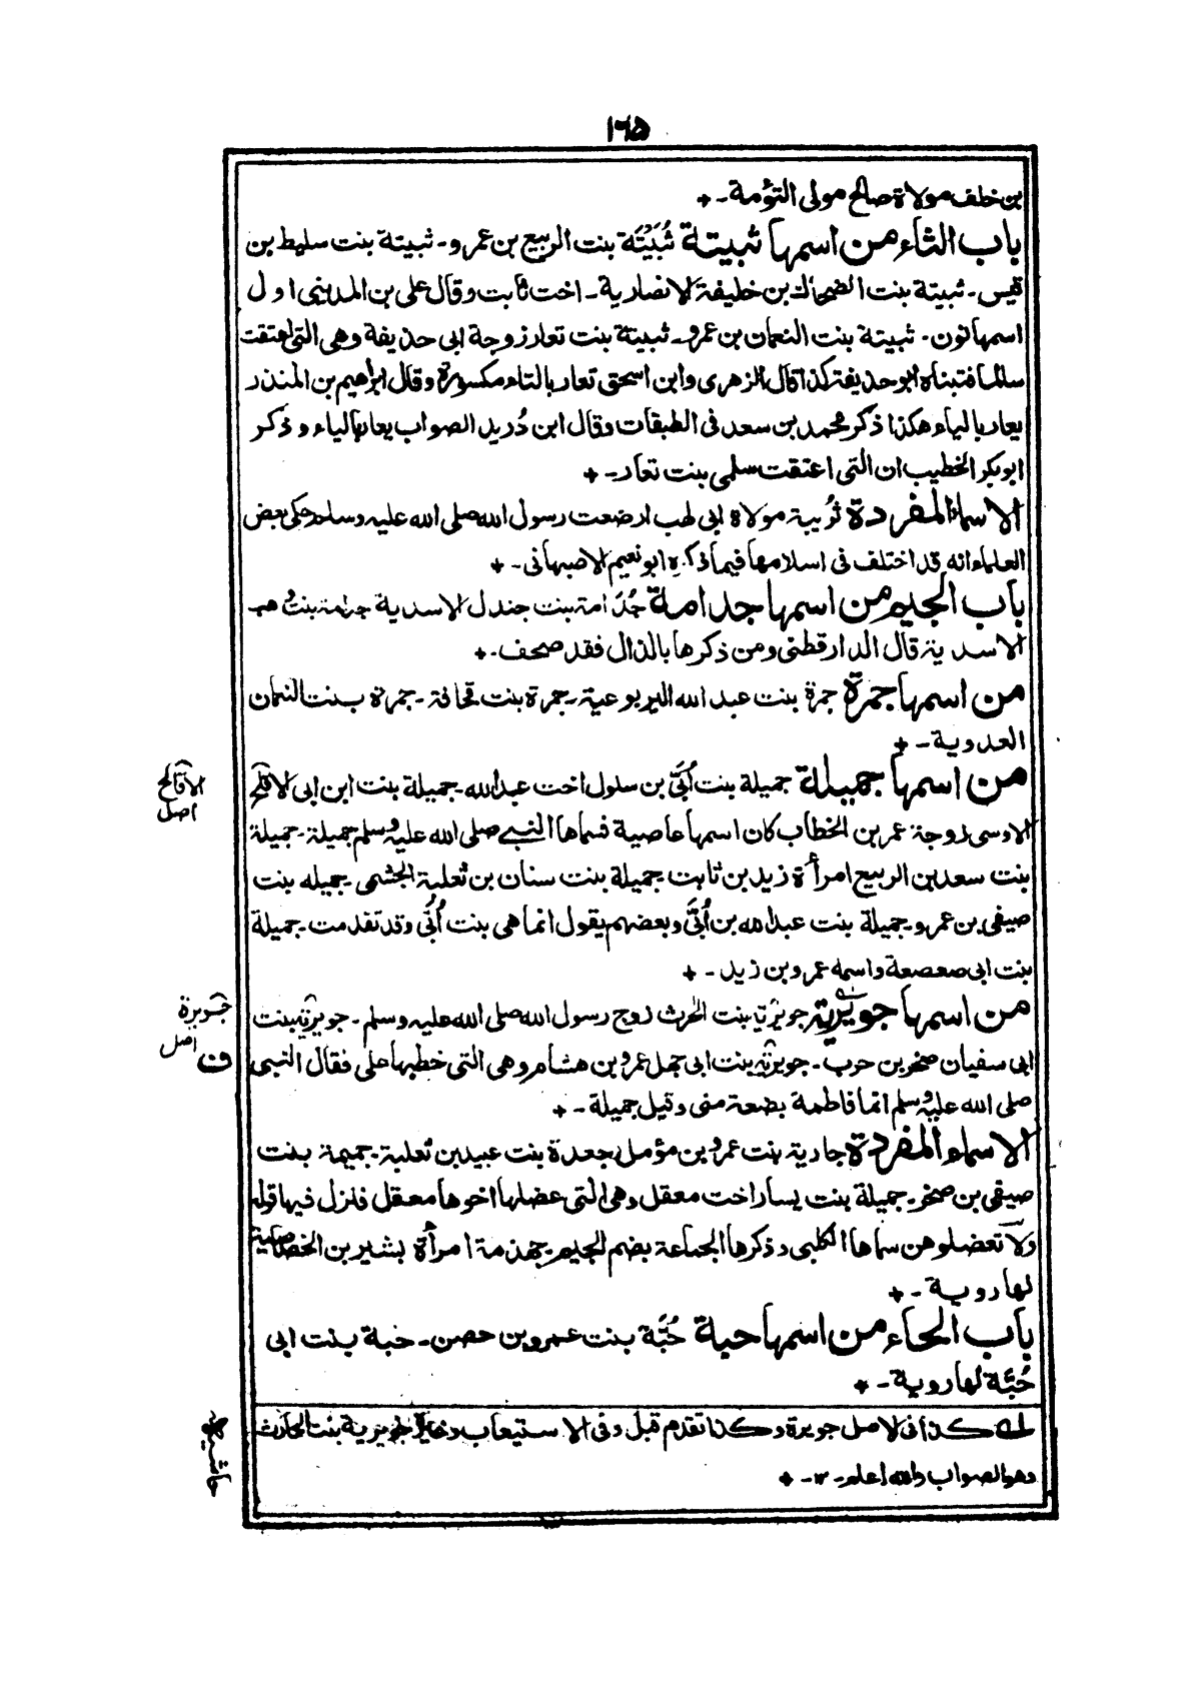 ١٦٥
بن خلف مولاة صالح مولى التؤمة ـ +
باب الثاء من اسمها ثبيتة ثُبَيْتَة بنت الربيع بن عمرو ـ ثبيتة بنت سليط بن
قيس ـ ثبيتة بنت الضحاك بن خليفة الانصارية ـ اخت ثابت وقال على بن المدينى اول
اسمها نون ـ ثبيتة بنت النعمان بن عمرو ـ ثبيتة بنت تعار زوجة ابى حذيفة وهى التى اعتقت
سالما فتبناه ابو حذيفة كذا قال الزهرى وابن اسحق تعار بالتاء مكسورة وقال ابراهيم بن المنذر
يعار بالياء هكذا ذكر محمد بن سعد فى الطبقات وقال ابن دُريد الصواب يعار بالياء وذكر
ابوبكر الخطيب ان التى اعتقت سلمى بنت تعار ـ +
الاسماء المفردة ثُريبة مولاة ابى لهب ارضعت رسول الله صلى الله عليه وسلم حكى بعض
العلماء انه قد اختلف فى اسلامها فيما ذكره ابو نعيم الاصبهانى ـ +
باب الجيم من اسمها جدامة جُدَامة بنت جندل الاسدية جدامة بنت وهب
الاسدية قال الدارقطنى ومن ذكرها بالذال فقد صحف ـ +
من اسمها جمرة جمرة بنت عبد الله اليربوعية ـ جمرة بنت قحافة ـ جمرة بنت النعمان
العدوية ـ +
من اسمها جميلة جميلة بنت أُبَىّ بن سلول اخت عبد الله ـ جميلة بنت ابن ابى الاقلح
الاقالح
اصل
الاوسى زوجة عمر بن الخطاب كان اسمها عاصية فسماها النبى صلى الله عليه وسلم جميلة ـ جميلة
بنت سعد بن الربيع امرأة زيد بن ثابت جميلة بنت سنان بن ثعلبة الجشمى ـ جميله بنت
صيفى بن عمرو ـ جميلة بنت عبد الله بن أُبَىّ وبعضهم يقول انما هى بنت أُبَىّ وقد تقدمت ـ جميلة
بنت ابى صعصعة واسمه عمرو بن زيد ـ +
من اسمها جويرية جويرية بنت الحرث زوج رسول الله صلى الله عليه وسلم ـ جويرية بنت
جويرة
اصل
ابى سفيان صخر بن حرب ـ جويرية بنت ابى جهل عمرو بن هشام وهى التى خطبها على فقال النبى
ف
صلى الله عليه وسلم انما فاطمة بضعة منى وقيل جميلة ـ +
الاسماء المفردة جارية بنت عمرو بن مؤمل ـ جعدة بنت عبيد بن ثعلبة ـ جميمة بنت
صيفى بن صخر ـ جميلة بنت يسار اخت معقل وهى التى عضلها اخوها معقل فنزل فيها قوله
ولا تعضلوهن سماها الكلبى وذكرها الجماعة بضم الجيم ـ جهذمة امرأة بشير بن الخصاصية
لها روية ـ +
باب الحاء من اسمها حبة حُبَّة بنت عمرو بن حصن ـ حبة بنت ابى
حُبَّة لها روية ـ +
له كذا فى الاصل جويرة وكذا تقدم قبل وفى الاستيعاب وغيره جويرية بنت الحارث
حاشيه
وهو الصواب والله اعلم ـ ١٢ ـ +